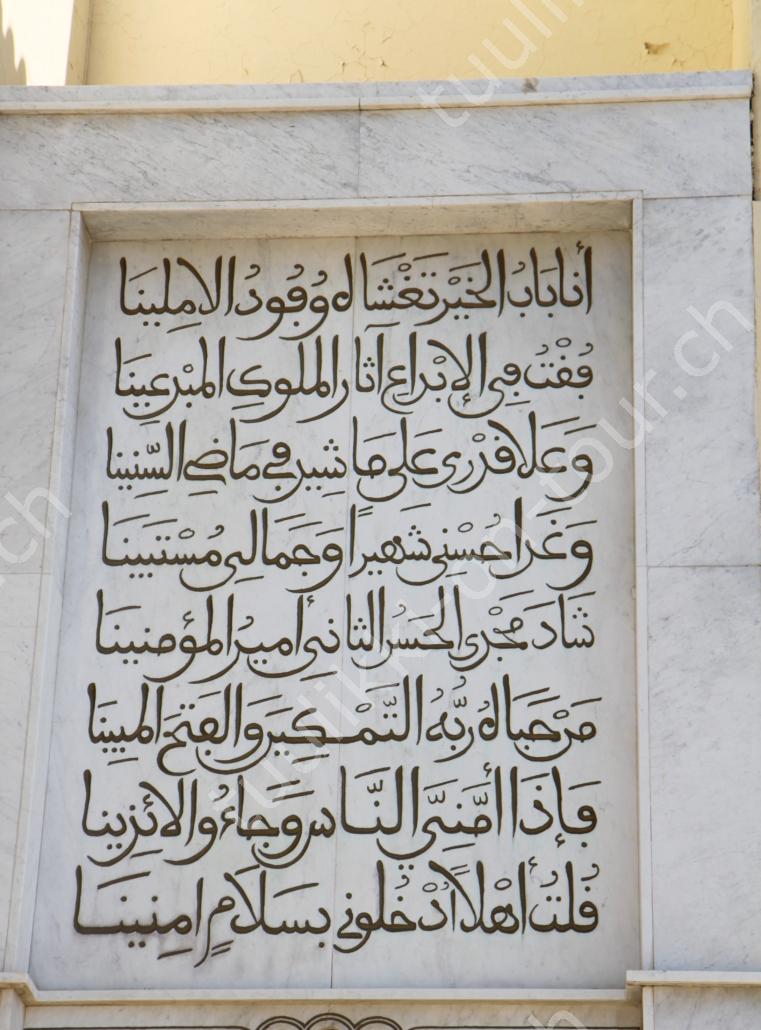 أنا بَابُ الخَيْر تَغْشَاه وُفُودُ الامِلينَا
فُقْتُ في الإبْداع آثار الملوكِ المبْدعينَا
وَعَلا قَدْري عَلى مَا شِيد في مَاضي السِّنينا
وَغَدا حُسْني شَهيراً وَجَمالي مُسْتَبينَا
شَادَ مَجْدي الحَسَنُ الثاني أميرُ المؤمنينَا
مَنْ حَباهُ رَبُّهُ التَّمْكِينَ والفتحَ المبِينَا
فَإذَا أمَّنِي النَّاسُ وَجَاءُوا لائذِينا
قُلتُ أهْلاً اُدْخُلوني بسَلَامٍ امِنينَا
tuulikki-on-tour.ch